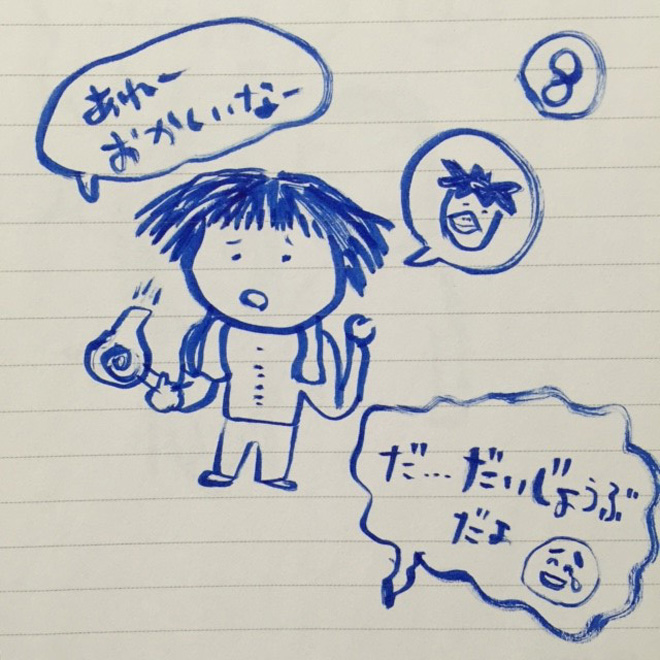 あれー
おかしいなー
8
だ…だいじょうぶ
だよ